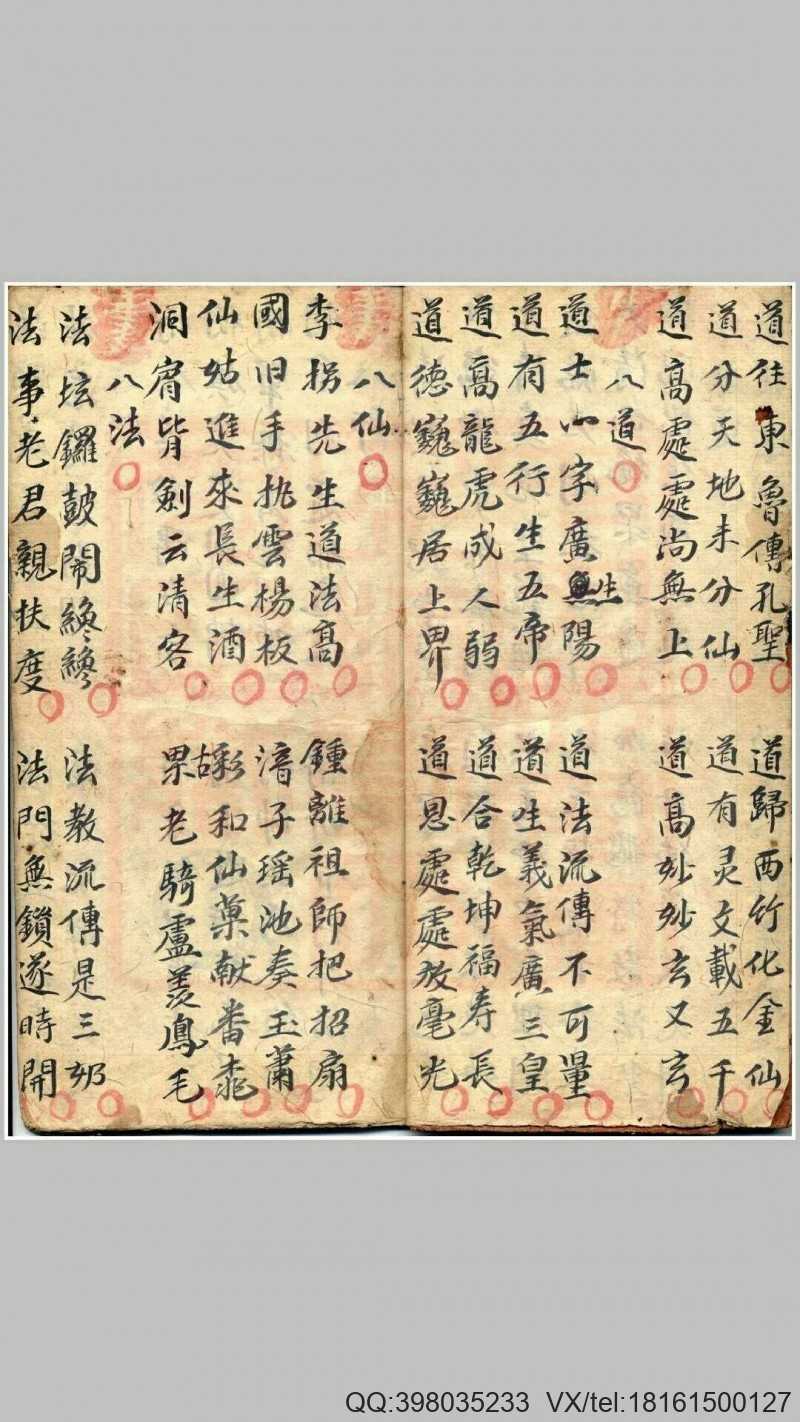 道往東魯傳孔聖
道歸西竹化金仙
道分天地未分仙
道有灵文載五千
道高處處尚無上
道高妙妙玄又玄
八道
道士小字廣無生陽
道法流傳不可量
道有五行生五帝
道生義氣廣三皇
道高龍虎成人弱
道合乾坤福寿長
道德巍巍居上界
道恩處處放毫光
八仙
李拐先生道法高
鍾離祖師把招扇
國旧手執雲楊板
湇子瑶池奏玉蕭
仙姑進來長生酒
彩和仙菓献番桃
洞賓皆劍云清客
果老騎盧羨鳳毛
八法
法坛鑼鼓鬧
法教流傳是三奶
法事老君親扶度
法門無鎖遂時開
QQ:398035233 VX/tel:18161500127